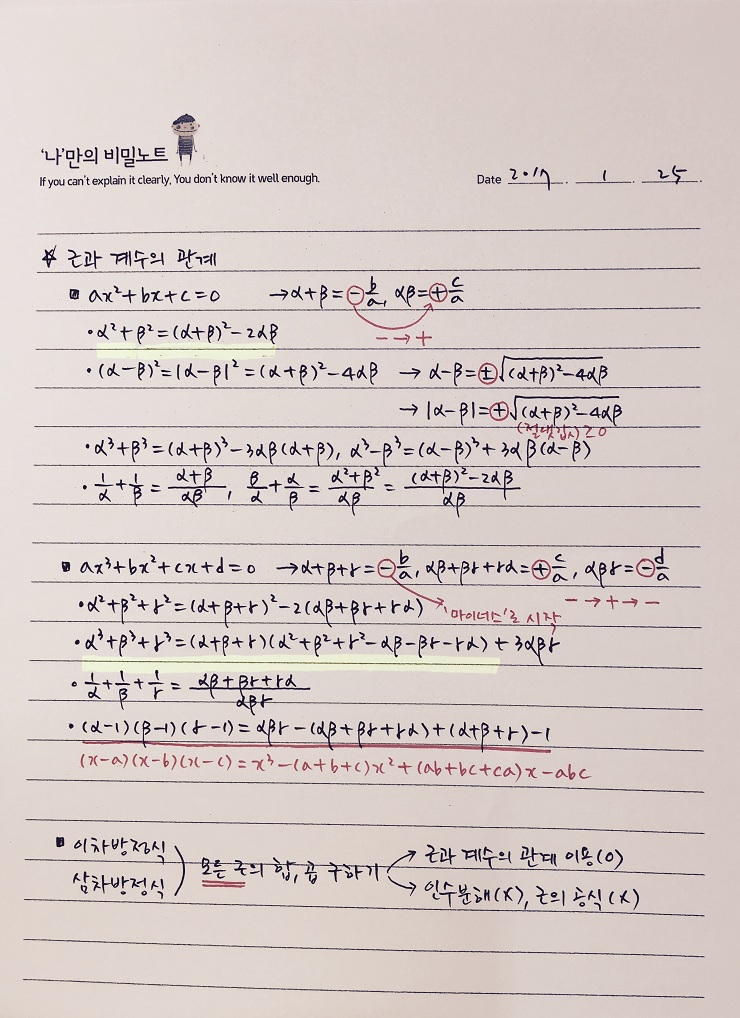 '나'만의 비밀노트
If you can't explain it clearly, You don't know it well enough.
Date 2017. 1. 25.
☆ 근과 계수의 관계
▪ ax²+bx+c=0 →α+β=⊖b/a, αβ=⊕c/a
− → +
• α²+β²=(α+β)²-2αβ
• (α-β)²=|α-β|²=(α+β)²-4αβ → α-β=±√(α+β)²-4αβ
→ |α-β|=⊕√(α+β)²-4αβ
(절댓값)≥0
• α³+β³=(α+β)³-3αβ(α+β), α³-β³=(α-β)³+3αβ(α-β)
• 1/α+1/β=α+β/αβ, β/α+α/β=α²+β²/αβ=(α+β)²-2αβ/αβ
▪ ax³+bx²+cx+d=0 →α+β+γ=⊖b/a, αβ+βγ+γα=⊕c/a, αβγ=⊖d/a
− → + → −
• α²+β²+γ²=(α+β+γ)²-2(αβ+βγ+γα) '마이너스'로 시작
• α³+β³+γ³=(α+β+γ)(α²+β²+γ²-αβ-βγ-γα)+3αβγ
• 1/α+1/β+1/γ=αβ+βγ+γα/αβγ
• (α-1)(β-1)(γ-1)=αβγ-(αβ+βγ+γα)+(α+β+γ)-1
(x-a)(x-b)(x-c)=x³-(a+b+c)x²+(ab+bc+ca)x-abc
▪ 이차방정식
삼차방정식
모든 근의 합, 곱 구하기
→ 근과 계수의 관계 이용(O)
→ 인수분해(X), 근의 공식(X)